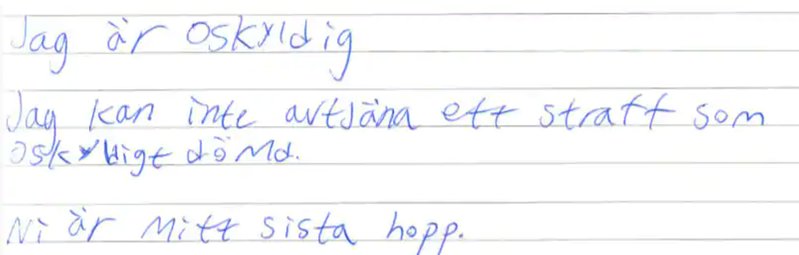 Jag är oskyldig
Jag kan inte avtjäna ett straff som
oskyldigt dömd.
Ni är mitt sista hopp.